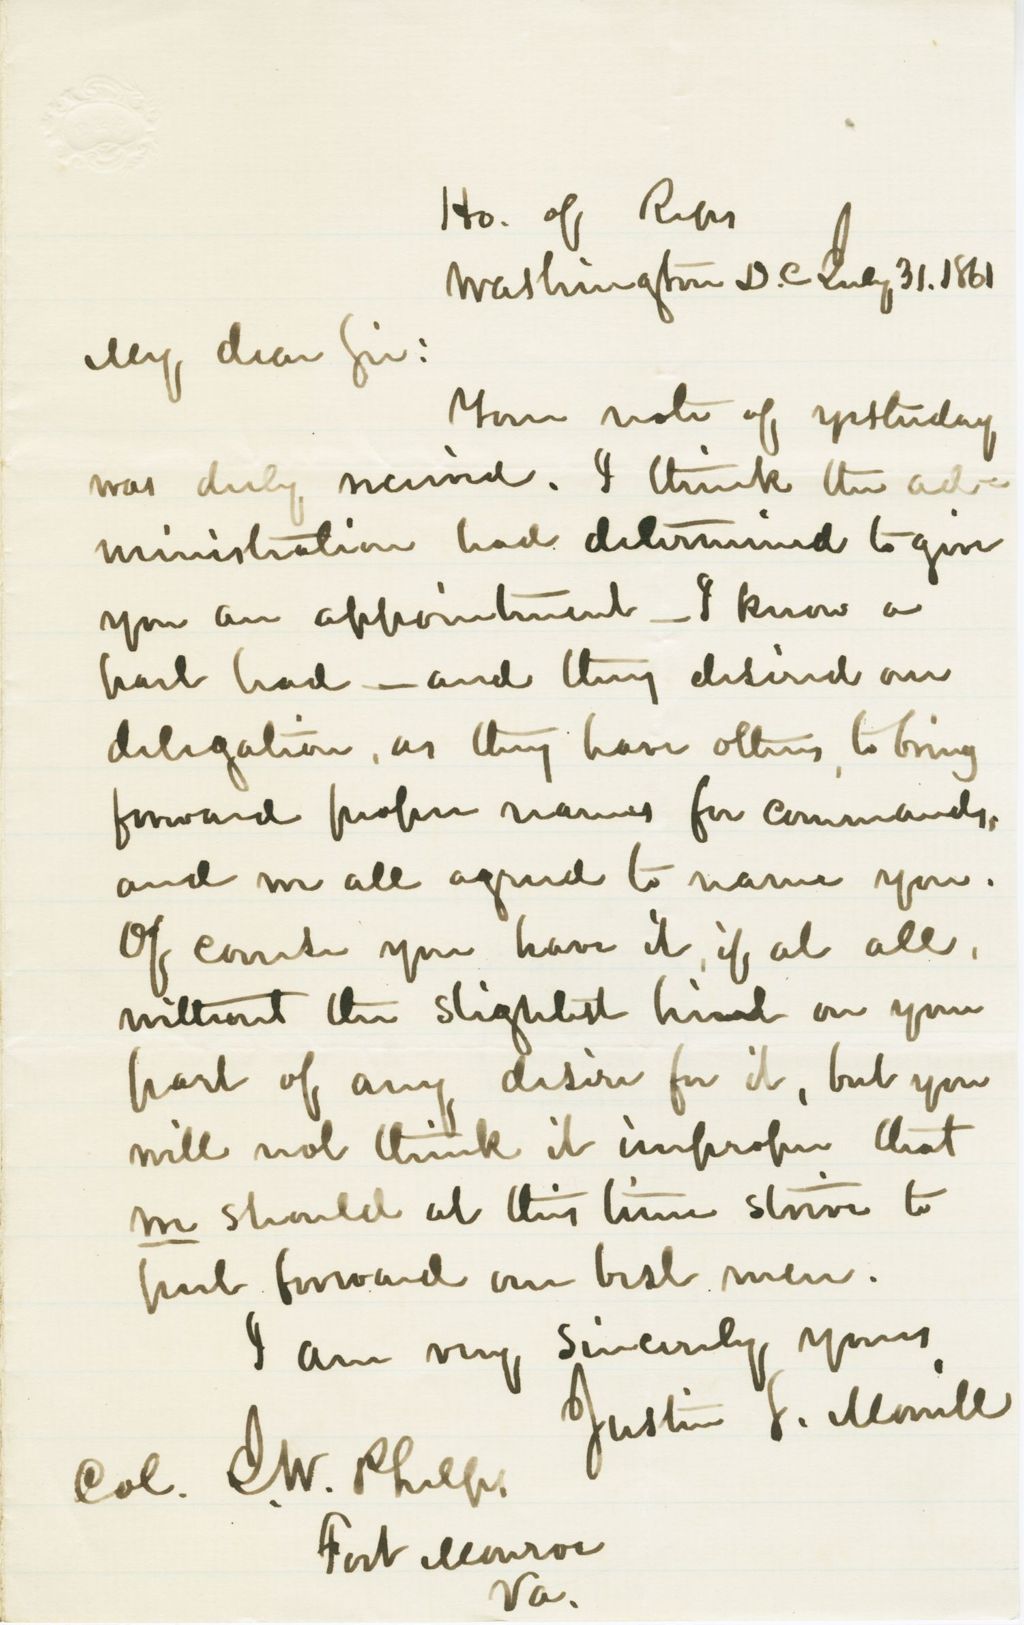 Ho. of Reps
Washington D.C. July 31. 1861
My dear Sir:
Your note of yesterday
was duly received. I think the ad-
ministration had determined to give
you an appointment — I know a
part had — and they desired our
delegation, as they have others, to bring
forward proper names for commands,
and we all agreed to name you.
Of course you have it, if at all,
without the slightest hint on your
part of any desire for it, but you
will not think it improper that
we should at this time strive to
put forward our best men.
I am very sincerely yours,
Justin S. Morrill
Col. J.W. Phelps,
Fort Monroe
Va.